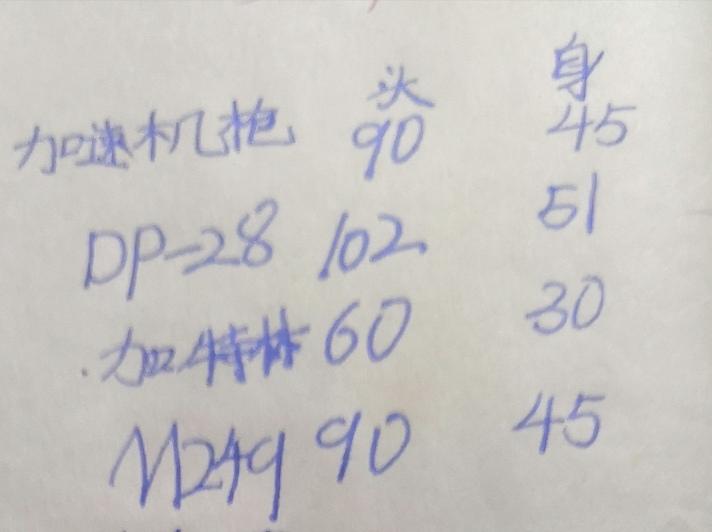 头 身
加速机枪 90 45
DP-28 102 51
加特林 60 30
M249 90 45